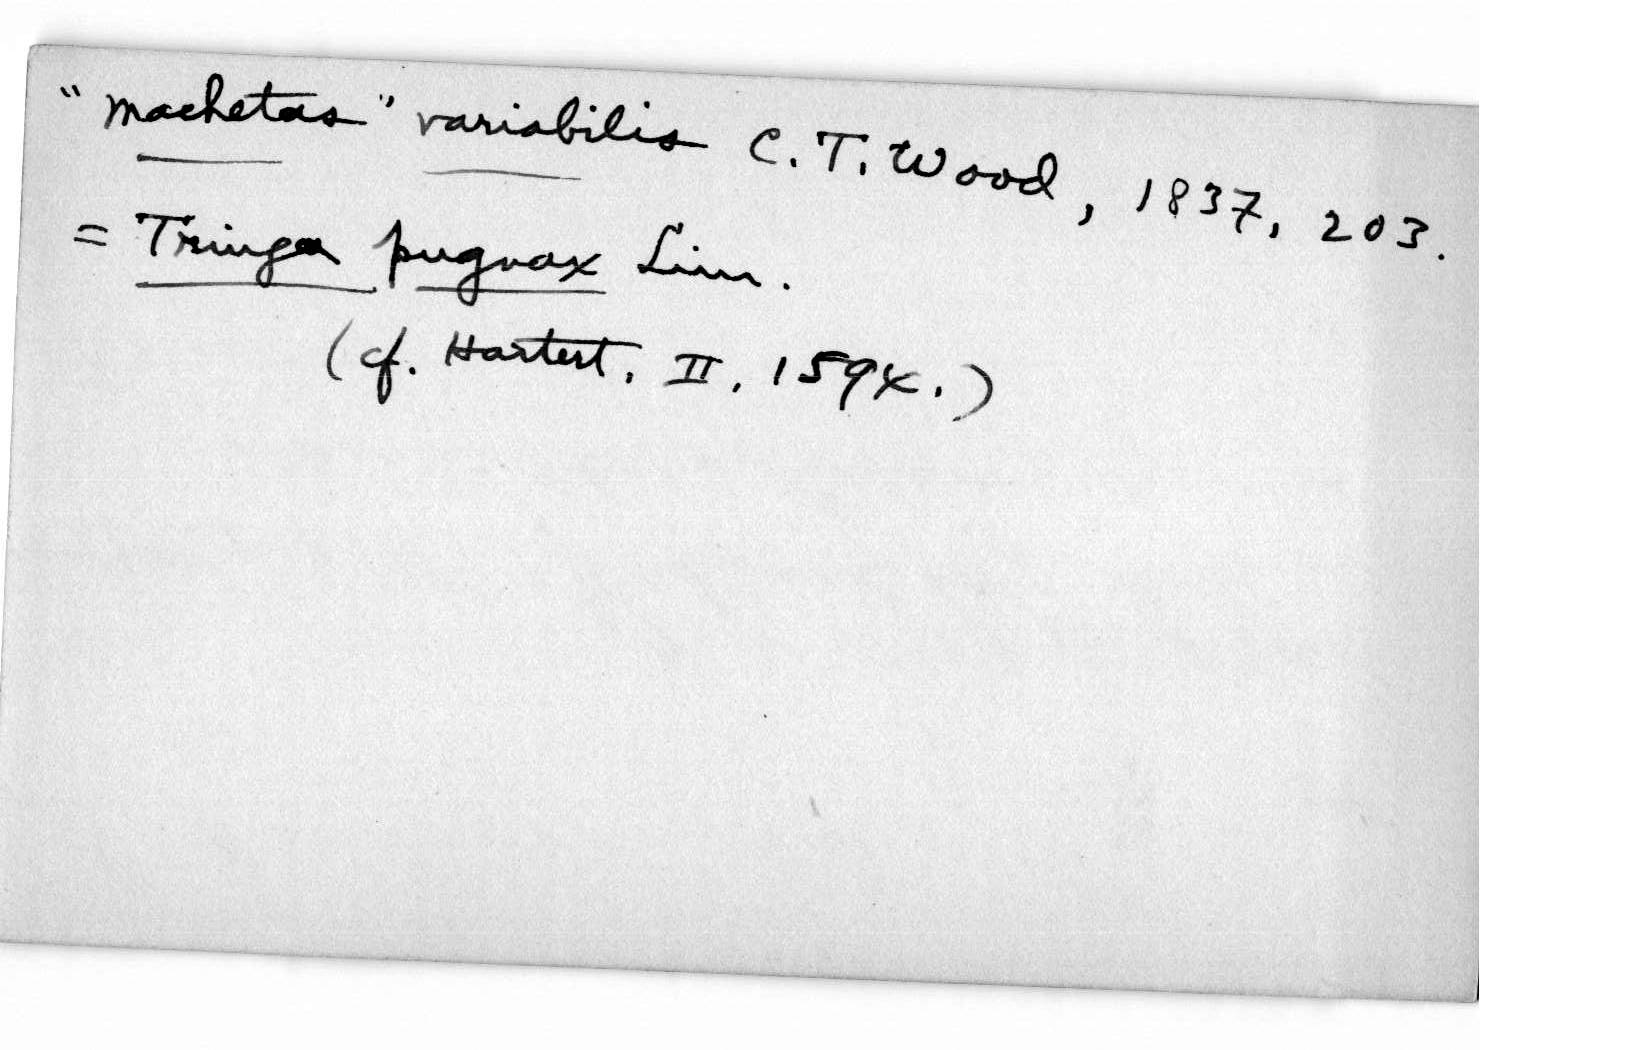 "Machetas" variabilis C. T. Wood, 1837, 203.
= Tringa pugnax Linn.
(cf. Hartert, II, 1594.)